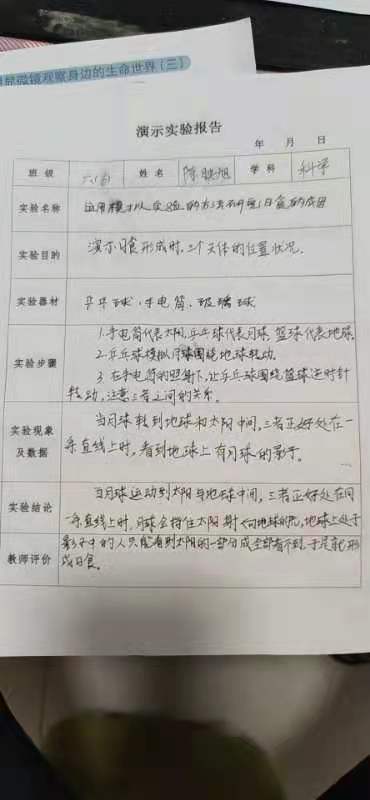 显微镜观察身边的生命世界(三)
演示实验报告
年 月 日
班级 六(6) 姓名 陈映旭 学科 科学
实验名称 运用模拟实验的方法研究日食的成因
实验目的 演示日食形成时,三个天体的位置状况.
实验器材 乒乓球、手电筒、玻璃球
1.手电筒代表太阳,乒乓球代表月球,篮球代表地球.
实验步骤 2.乒乓球模拟月球围绕地球转动.
3.在手电筒的照射下,让乒乓球围绕篮球逆时针
转动,注意三者之间的关系.
实验现象 当月球转到地球和太阳中间,三者正好处在一
及数据 条直线上时,看到地球上有月球的影子.
实验结论 当月球运动到太阳与地球中间,三者正好处在同
一条直线上时,月球会挡住太阳射向地球的光,地球上处于
教师评价 影子中的人只能看到太阳的一部分或全部看不到,于是就形
成日食.